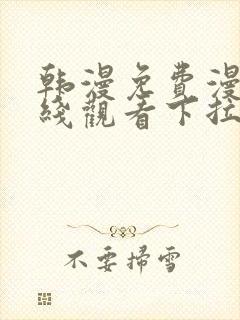 韩漫免費漫
綫觀看下拉
不要掃雪